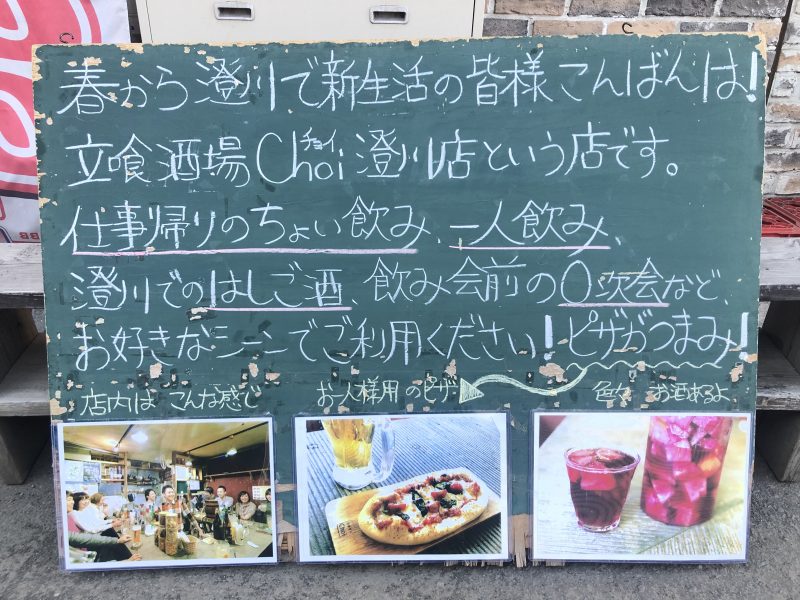 春から澄川で新生活の皆様こんばんは!
立喰酒場Choi澄川店という店です。
チョイ
仕事帰りのちょい飲み、一人飲み、
澄川でのはしご酒、飲み会前の0次会など、
お好きなシーンでご利用ください!ピザがつまみ!
店内はこんな感で
お一人様用のピザ
色々お酒あるよ